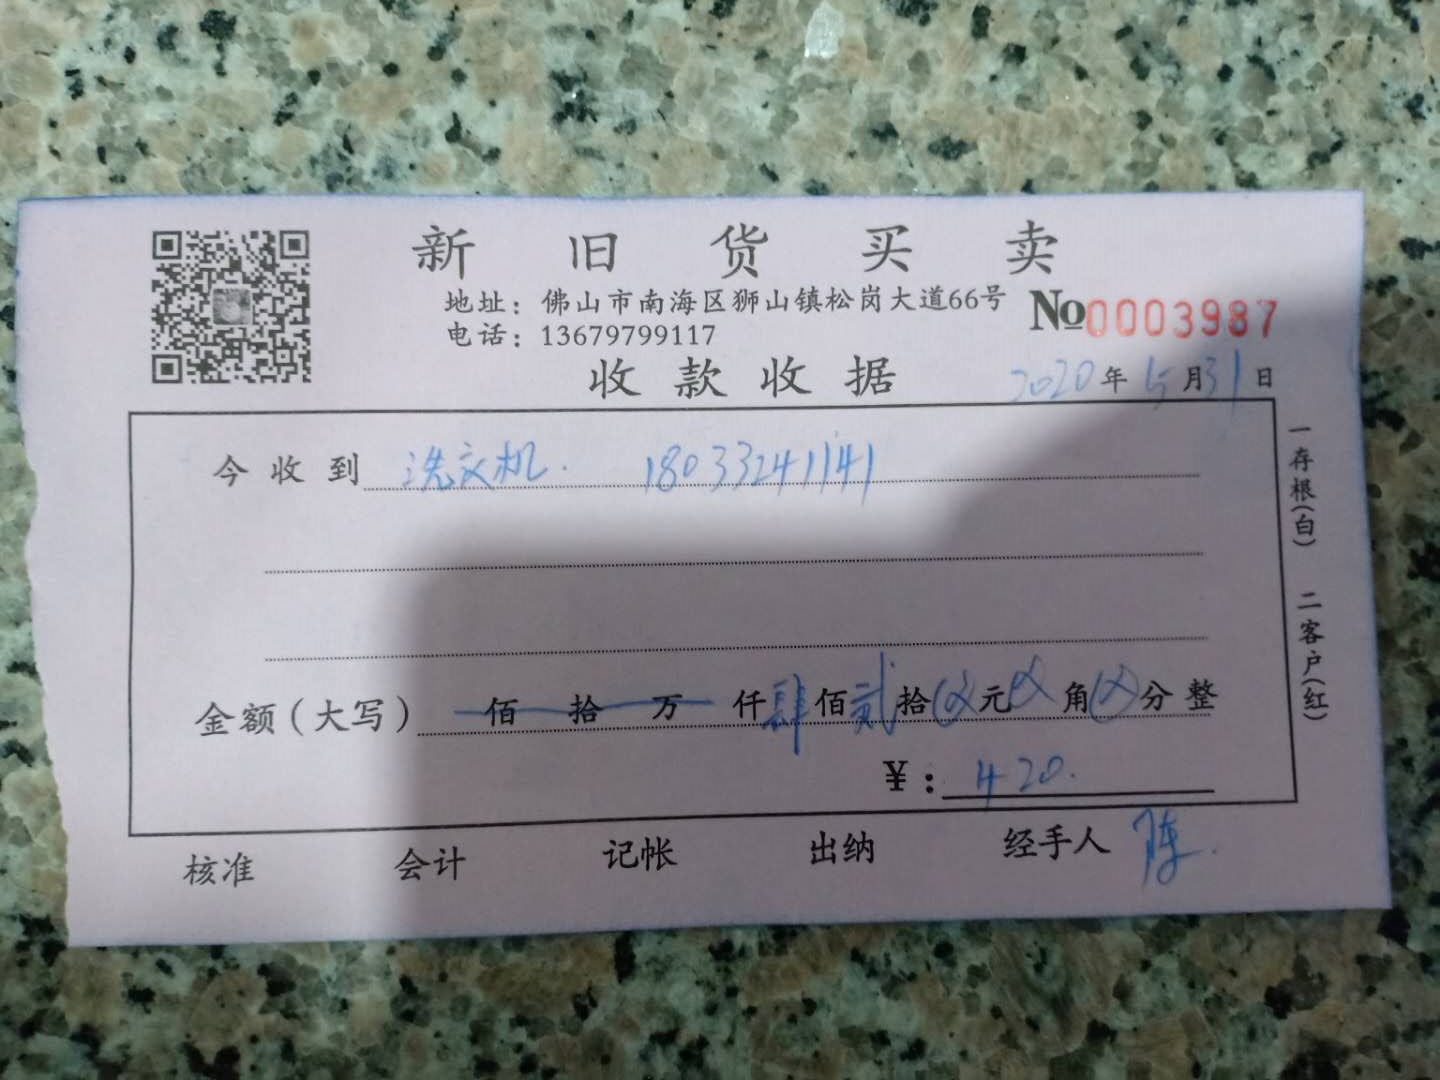 新旧货买卖
地址：佛山市南海区狮山镇松岗大道66号
电话：13679799117
№0003987
收款收据
2020年5月31日
今收到 洗衣机. 18033241141
金额（大写） 佰 拾 万 仟肆佰贰拾⊗元⊗角⊗分整
￥：420.
核准 会计 记帐 出纳 经手人 陈.
一存根(白) 二客户(红)